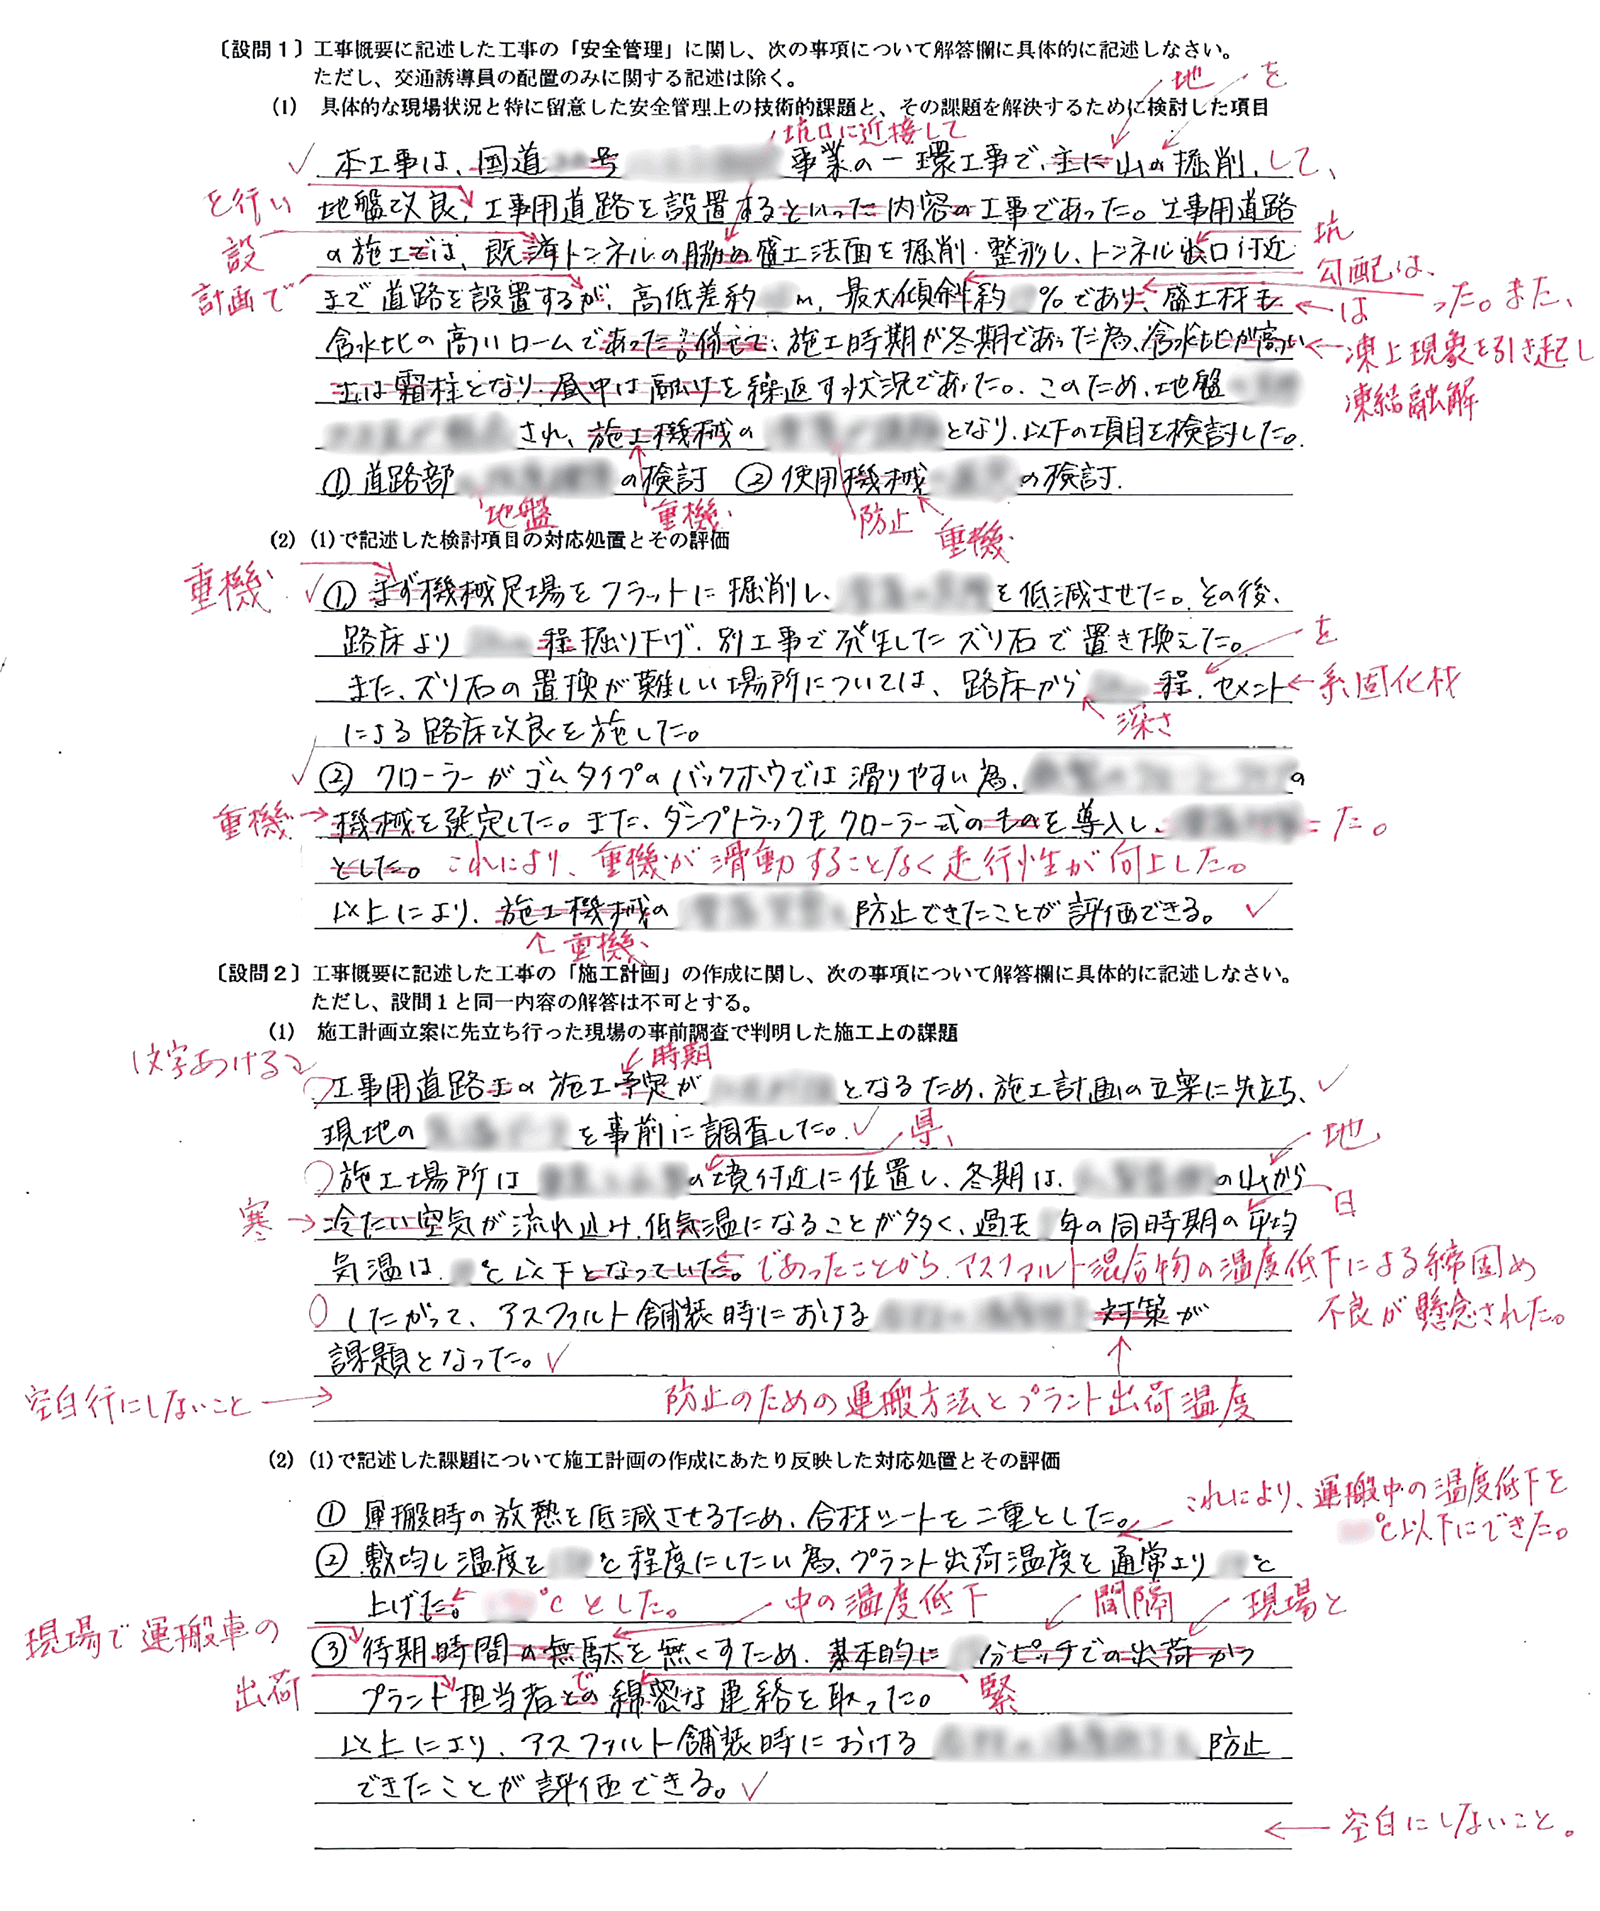 〔設問１〕工事概要に記述した工事の「安全管理」に関し、次の事項について解答欄に具体的に記述しなさい。
ただし、交通誘導員の配置のみに関する記述は除く。
地 を
(1) 具体的な現場状況と特に留意した安全管理上の技術的課題と、その課題を解決するために検討した項目
坑口に近接して
本工事は、国道 号 事業の一環工事で、主に山の掘削、して、
を行い 地盤改良、工事用道路を設置するといった内容の工事であった。工事用道路
設 の施工では、既済トンネルの脇の盛土法面を掘削・整形し、トンネル出口付近 坑
計画で まで道路を設置するが、高低差約 m、最大傾斜約 %であり、盛土材も 勾配は、 は った。また、
含水比の高いロームであった。併せて、施工時期が冬期であった為、含水比が高い 凍上現象を引き起し
土は霜柱となり、昼中は融けを繰返す状況であった。このため、地盤 凍結融解
され、施工機械の となり、以下の項目を検討した。
①道路部 の検討 ②使用機械 の検討.
地盤 重機 防止 重機
(2) (1)で記述した検討項目の対応処置とその評価
重機 ①まず機械足場をフラットに掘削し、 を低減させた。その後、
路床より 程掘り下げ、別工事で発生したズリ石で置き換えた。 を
また、ズリ石の置換が難しい場所については、路床から 程、セメント 系固化材
深さ
による路床改良を施した。
②クローラーがゴムタイプのバックホウでは滑りやすい為、 の
重機 機械を選定した。また、ダンプトラックもクローラー式のものを導入し、 た。
とした。これにより、重機が滑動することなく走行性が向上した。
以上により、施工機械の 防止できたことが評価できる。
重機
〔設問２〕工事概要に記述した工事の「施工計画」の作成に関し、次の事項について解答欄に具体的に記述しなさい。
ただし、設問１と同一内容の解答は不可とする。
(1) 施工計画立案に先立ち行った現場の事前調査で判明した施工上の課題
1文字あける 時期
工事用道路工の施工予定が となるため、施工計画の立案に先立ち、
現地の を事前に調査した。 県、 地
施工場所は の境付近に位置し、冬期は、 の山から
寒 冷たい空気が流れ込み、低気温になることが多く、過去 年の同時期の平均 日
気温は、 ℃以下となっていた。であったことから、アスファルト混合物の温度低下による締固め
不良が懸念された。
したがって、アスファルト舗装時における 対策が
課題となった。
空白行にしないこと 防止のための運搬方法とプラント出荷温度
(2) (1)で記述した課題について施工計画の作成にあたり反映した対応処置とその評価
これにより、運搬中の温度低下を
℃以下にできた。
①運搬時の放熱を低減させるため、合材シートを二重とした。
②敷均し温度を ℃程度にしたい為、プラント出荷温度を通常より ℃
上げた。 ℃とした。 中の温度低下 間隔 現場と
現場で運搬車の ③待期時間の無駄を無くすため、基本的に 分ピッチでの出荷かつ
出荷 プラント担当者との綿密な連絡を取った。 で 緊
以上により、アスファルト舗装時における 防止
できたことが評価できる。
空白にしないこと。